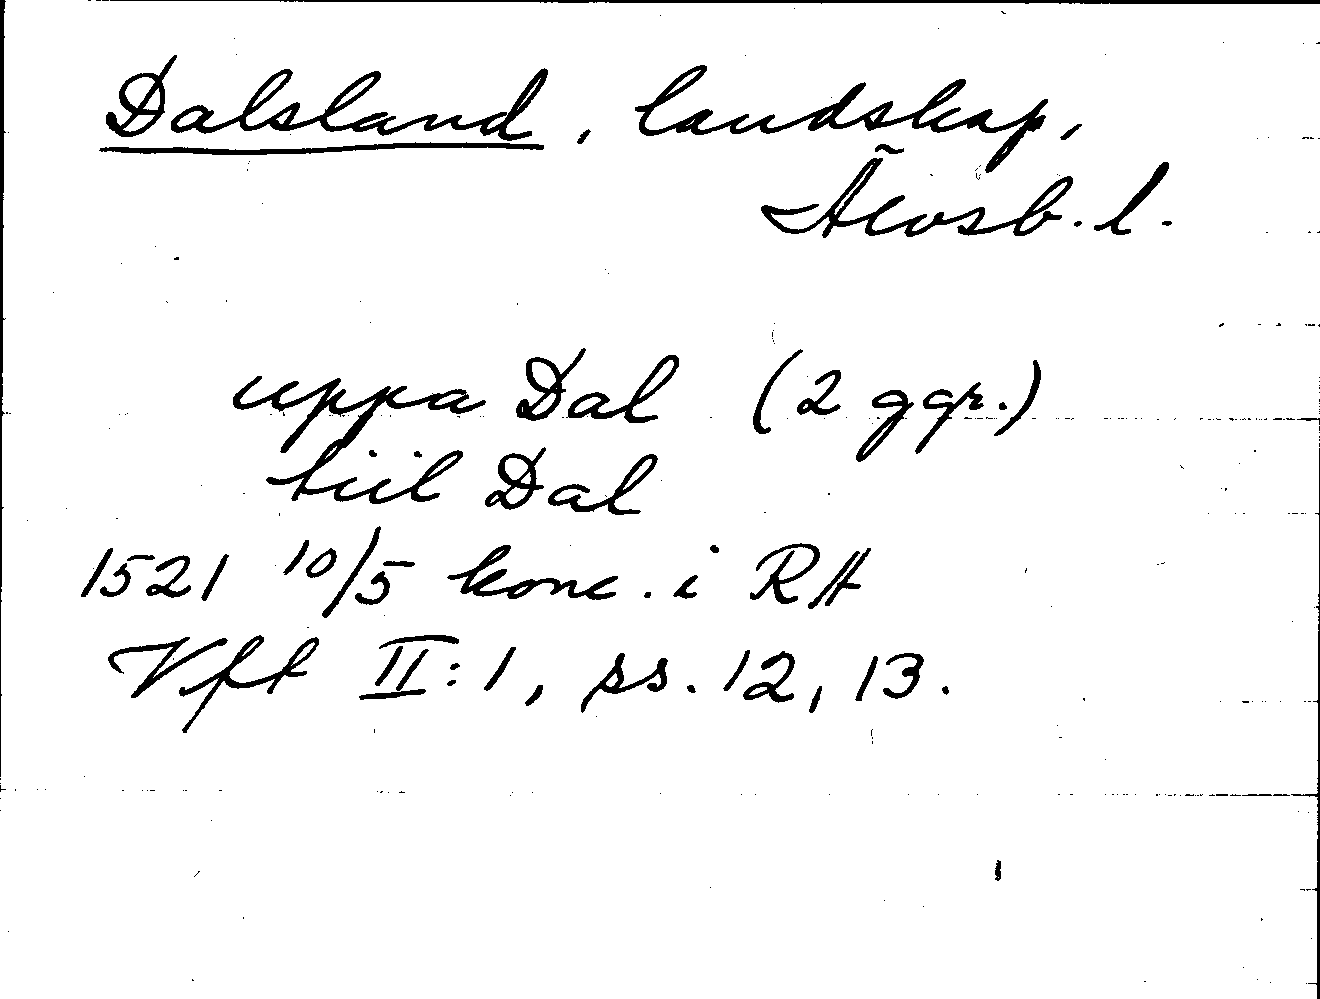 Dalsland, landskap,
Älvsb. l.
uppa Dal (2 ggr.)
tiil Dal
1521 10/5 konc. i RA
Vft II:1, ss. 12, 13.